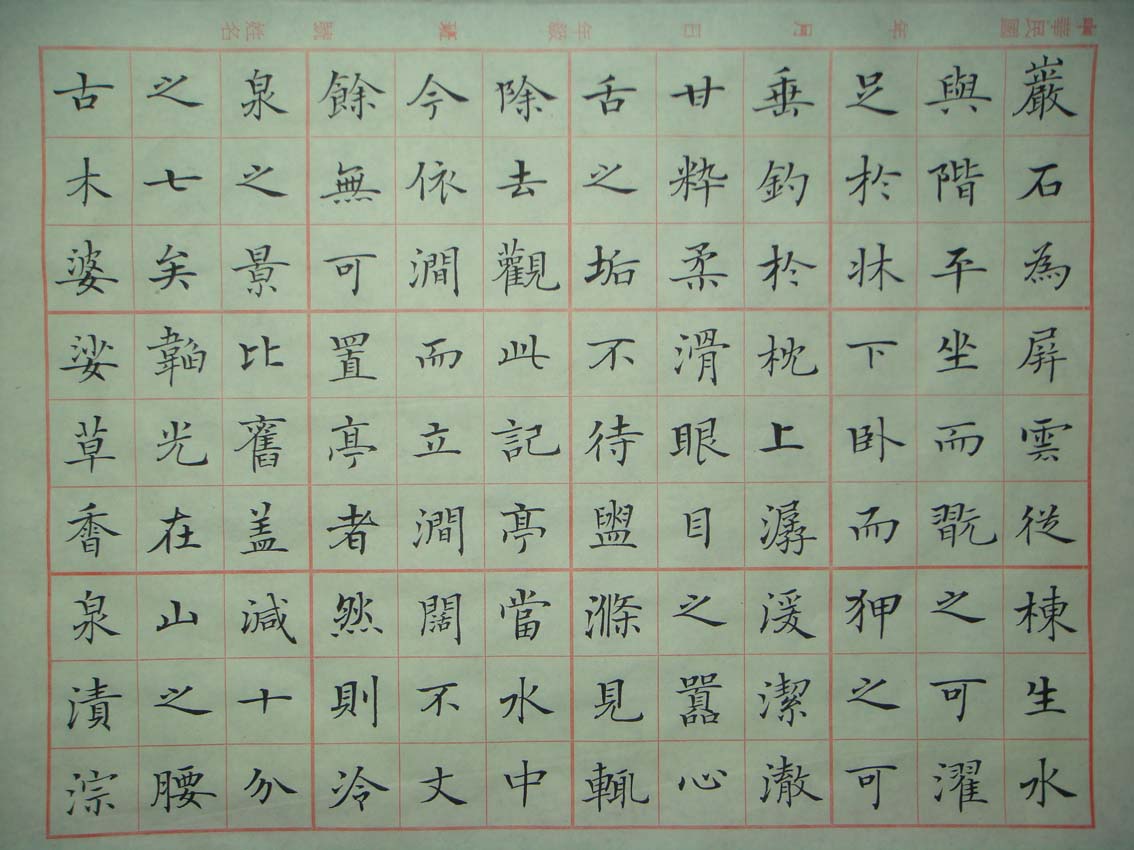 中華民國 年 月 日 年級 班 號 姓名
巖石為屏雲從棟生水
與階平坐而翫之可濯
足於牀下卧而狎之可
垂釣於枕上潺湲潔澈
甘粹柔滑眼目之囂心
舌之垢不待盥滌見輒
除去觀此記亭當水中
今依澗而立澗闊不丈
餘無可置亭者然則冷
泉之景比舊盖減十分
之七矣韜光在山之腰
古木婆娑草香泉漬淙